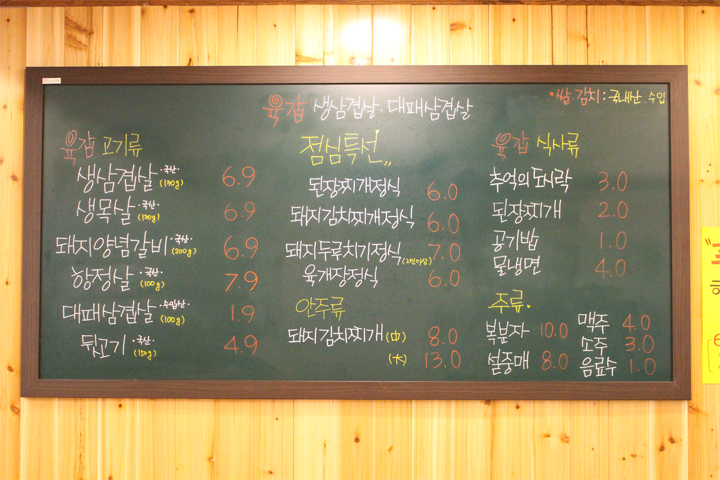 육감 생삼겹살·대패삼겹살
*쌀 김치: 국내산·수입
육감 고기류
생삼겹살·국산·(130g) 6.9
생목살·국산·(130g) 6.9
돼지양념갈비·국산·(200g) 6.9
항정살·국산·(100g) 7.9
대패삼겹살·수입산·(100g) 1.9
뒷고기·국산·(150g) 4.9
점심특선,,
된장찌개정식 6.0
돼지김치찌개정식 6.0
돼지두루치기정식(2인이상) 7.0
육개장정식 6.0
안주류
돼지김치찌개(中) 8.0
(大) 13.0
육감 식사류
추억의도시락 3.0
된장찌개 2.0
공기밥 1.0
물냉면 4.0
주류.
복분자 10.0 맥주 4.0
설중매 8.0 소주 3.0
음료수 1.0